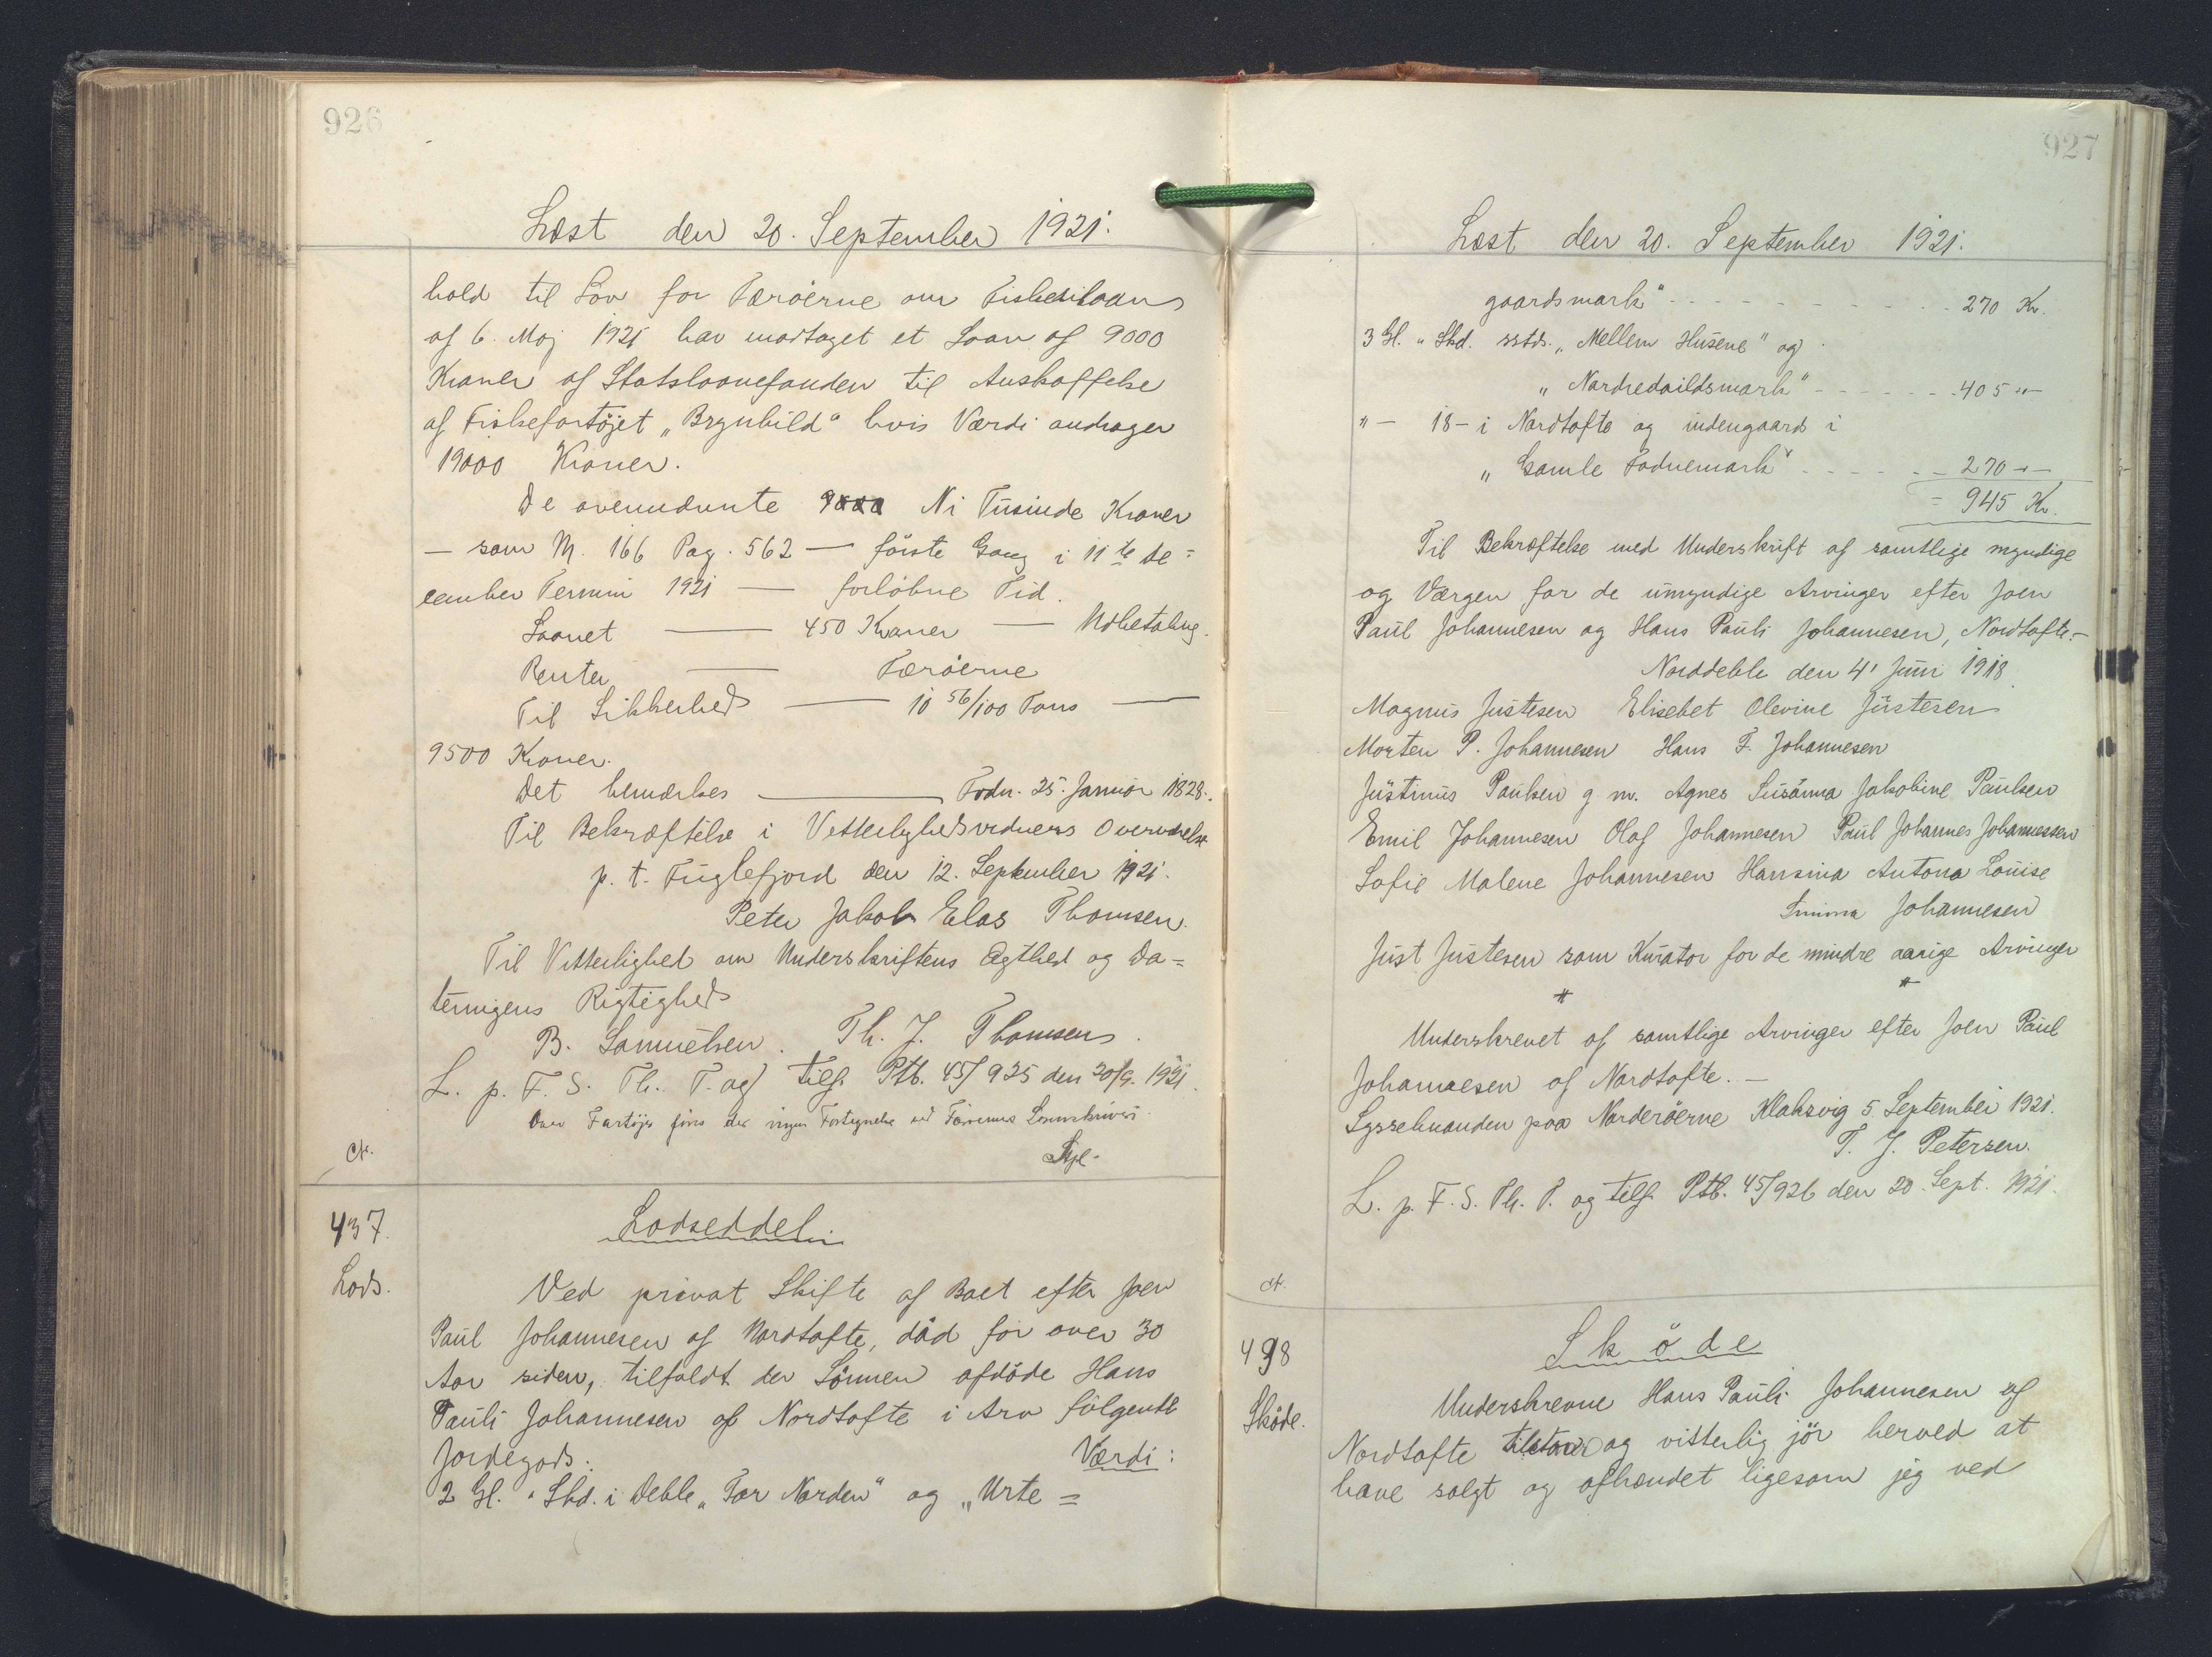 926
Læst den 20. September 1921.
hold til Lov for Færöerne om Fiskerilaan
af 6. Maj 1921 har modtaget et Laan af 9000
Kroner af Statslaanefonden til Anskaffelse
af Fiskefartöjet „Brynhild" hvis Værdi andrager
19000 Kroner.
De ovennævnte Ni Tusinde Kroner
— som M. 166 Pag. 562 — förste Gang i 11te De=
cember Termin 1921 — forløbne Tid.
Laanet — 450 Kroner — Udbetaling.
Renter — Færöerne
Til Sikkerhed — 10 56/100 Tons —
9500 Kroner.
Det bemærkes — Frdn. 25. Januar 1828.
Til Bekræftelse i Vitterlighedsvidners Overværelse
p. t. Fuglefjord den 12. September 1921.
Peter Jakob Elas Thomsen.
Til Vitterlighed om Underskriftens Ægthed og Da=
teringens Rigtighed
B. Samuelsen. Th. J. Thomsen.
L. p. F. S. Th. T. og tilf. Ptb. 45/925 den 20/9. 1921.
Over Fartöjer föres der ingen Fortegnelse ved Færøernes Sorenskriveri.
Ct.
437.
Lods.
Lodseddel.
Ved privat Skifte af Boet efter Joen
Paul Johannesen af Nordtofte, död for over 30
Aar siden, tilfaldt der Sönnen afdöde Hans
Pauli Johannesen af Nordtofte i Arv fölgende
Jordegods: Værdi:
2 Gl. " Skd. i Deble „For Norden" og „Urte=
927
Læst den 20. September 1921.
gaardsmark" - - - 270 Kr.
3 Gl. " Skd. sstds. „Mellem Husene" og
„Nordredaildsmark" - - - 405 "-
" — 18 - i Nordtofte og indengaards i
„Gamle Fodnemark" - - - 270 "-
= 945 Kr.
Til Bekræftelse med Underskrift af samtlige myndige
og Værgen for de umyndige Arvinger efter Joen
Paul Johannesen og Hans Pauli Johannesen, Nordtofte.-
Norddeble den 4' Juni 1918
Magnus Justesen Elisebet Olevine Justesen
Morten P. Johannesen Hans F. Johannesen
Justinus Paulsen g. m. Agnes Susanna Jakobine Paulsen
Emil Johannesen Olaf Johannesen Paul Johannes Johannessen
Sofie Malene Johannesen Hansina Antona Louise
Johannesen
Just Justesen som Kurator for de mindre aarige Arvinger
Underskrevet af samtlige Arvinger efter Joen Paul
Johannesen af Nordtofte. —
Sysselmanden paa Norderöerne Klaksvig 5. September 1921.
T. J. Petersen.
L. p. F. S. Th. T. og tilf. Ptb. 45/926 den 20. Sept. 1921.
Ct.
498
Sköde.
Sköde
Underskrevne Hans Pauli Johannesen af
Nordtofte tilstaar og vitterlig jör herved at
have solgt og afhændet ligesom jeg ved